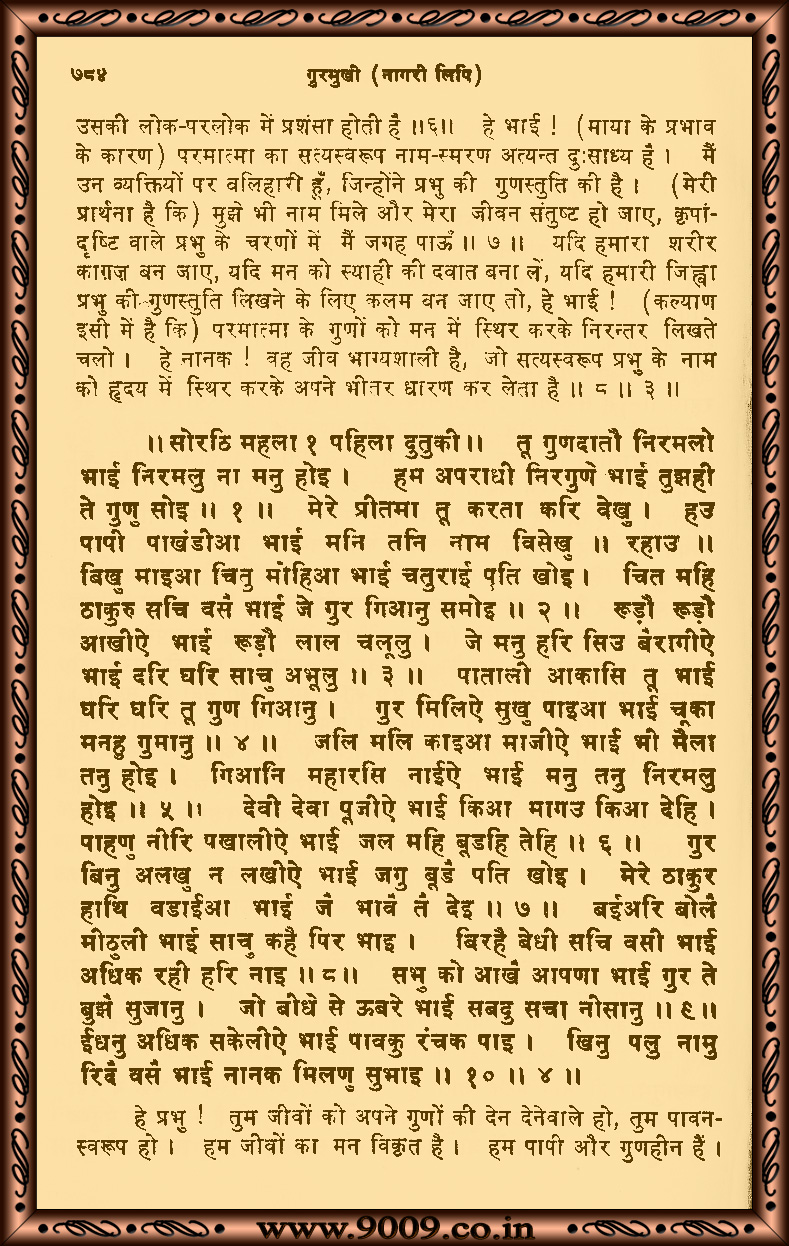 ७८४ गुरमुखी (नागरी लिपि)
उसकी लोक-परलोक में प्रशंसा होती है ॥६॥ हे भाई ! (माया के प्रभाव
के कारण) परमात्मा का सत्यस्वरूप नाम-स्मरण अत्यन्त दुःसाध्य है । मैं
उन व्यक्तियों पर बलिहारी हूँ, जिन्होंने प्रभु की गुणस्तुति की है । (मेरी
प्रार्थना है कि) मुझे भी नाम मिले और मेरा जीवन संतुष्ट हो जाए, कृपा-
दृष्टि वाले प्रभु के चरणों में मैं जगह पाऊँ ॥ ७ ॥ यदि हमारा शरीर
काग़ज़ बन जाए, यदि मन को स्याही की दवात बना लें, यदि हमारी जिह्वा
प्रभु की गुणस्तुति लिखने के लिए कलम बन जाए तो, हे भाई ! (कल्याण
इसी में है कि) परमात्मा के गुणों को मन में स्थिर करके निरन्तर लिखते
चलो । हे नानक ! वह जीव भाग्यशाली है, जो सत्यस्वरूप प्रभु के नाम
को हृदय में स्थिर करके अपने भीतर धारण कर लेता है ॥ ८ ॥ ३ ॥
॥ सोरठि महला १ पहिला दुतुकी ॥ तू गुणदातौ निरमलो
भाई निरमलु ना मनु होइ । हम अपराधी निरगुणे भाई तुझही
ते गुणु सोइ ॥ १ ॥ मेरे प्रीतमा तू करता करि वेखु । हउ
पापी पाखंडीआ भाई मनि तनि नाम विसेखु ॥ रहाउ ॥
बिखु माइआ चितु मोहिआ भाई चतुराई पति खोइ । चित महि
ठाकुरु सचि वसै भाई जे गुर गिआनु समोइ ॥ २ ॥ रूड़ौ रूड़ौ
आखीऐ भाई रूड़ौ लाल चलूलु । जे मनु हरि सिउ बैरागीऐ
भाई दरि घरि साचु अभूलु ॥ ३ ॥ पाताली आकासि तू भाई
घरि घरि तू गुण गिआनु । गुर मिलिऐ सुखु पाइआ भाई चूका
मनहु गुमानु ॥ ४ ॥ जलि मलि काइआ माजीऐ भाई भी मैला
तनु होइ । गिआनि महारसि नाईऐ भाई मनु तनु निरमलु
होइ ॥ ५ ॥ देवी देवा पूजीऐ भाई किआ मागउ किआ देहि ।
पाहणु नीरि पखालीऐ भाई जल महि बूडहि तेहि ॥ ६ ॥ गुर
बिनु अलखु न लखीऐ भाई जगु बूडै पति खोइ । मेरे ठाकुर
हाथि वडाईआ भाई जै भावै तै देइ ॥ ७ ॥ बईअरि बोलै
मीठुली भाई साचु कहै पिर भाइ । बिरहै बेधी सचि वसी भाई
अधिक रही हरि नाइ ॥ ८ ॥ सभु को आखै आपणा भाई गुर ते
बुझै सुजानु । जो बीधे से ऊबरे भाई सबदु सचा नीसानु ॥ ९ ॥
ईधनु अधिक सकेलीऐ भाई पावकु रंचक पाइ । खिनु पलु नामु
रिदै वसै भाई नानक मिलणु सुभाइ ॥ १० ॥ ४ ॥
हे प्रभु ! तुम जीवों को अपने गुणों की देन देनेवाले हो, तुम पावन-
स्वरूप हो । हम जीवों का मन विकृत है । हम पापी और गुणहीन हैं ।
www.9009.co.in